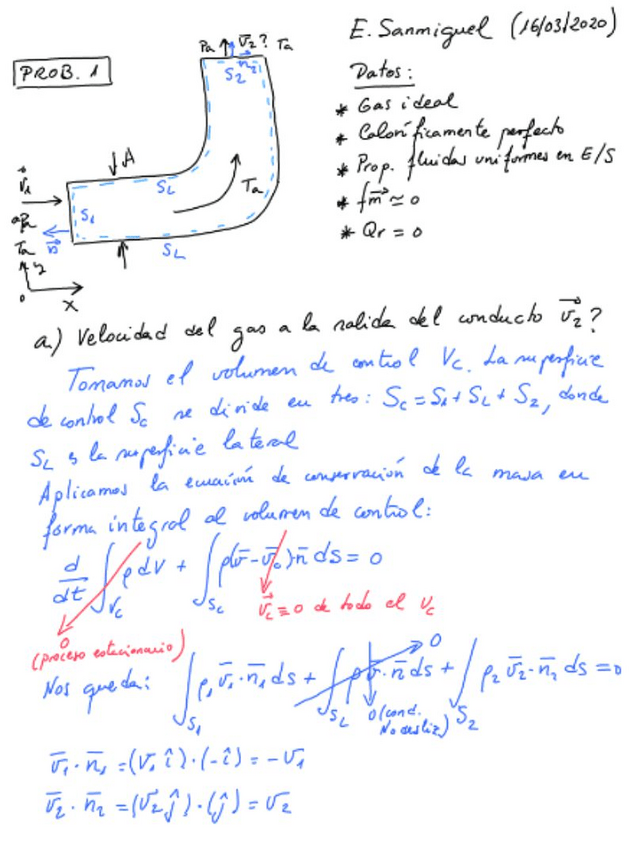 E. Sanmiguel (16/03/2020)
PROB. 1
Pa v̄₂? Ta
S₂ n̄₂
A
v⃗₁
S₁
S_L
Ta
Pa
Ta n̄
S_L
y
o
x
Datos:
* Gas ideal
* Caloríficamente perfecto
* Prop. fluidas uniformes en E/S
* fm⃗ ≃ 0
* Qr = 0
a) Velocidad del gas a la salida del conducto v⃗₂?
Tomamos el volumen de control Vc. La superficie
de control Sc se divide en tres: Sc = S₁ + S_L + S₂, donde
S_L es la superficie lateral
Aplicamos la ecuación de conservación de la masa en
forma integral al volumen de control:
d/dt ∫_Vc ρ dV + ∫_Sc ρ(v̄ - v̄c) n̄ ds = 0
v⃗c ≡ 0 de todo el Vc
0
(proceso estacionario)
Nos queda: ∫_S₁ ρ₁ v̄₁ · n̄₁ ds + ∫_S_L ρ v̄ · n̄ ds + ∫_S₂ ρ₂ v̄₂ · n̄₂ ds = 0
0
0 (cond.
No desliz)
v̄₁ · n̄₁ = (v₁ î) · (-î) = -v₁
v̄₂ · n̄₂ = (v₂ ĵ) · (ĵ) = v₂